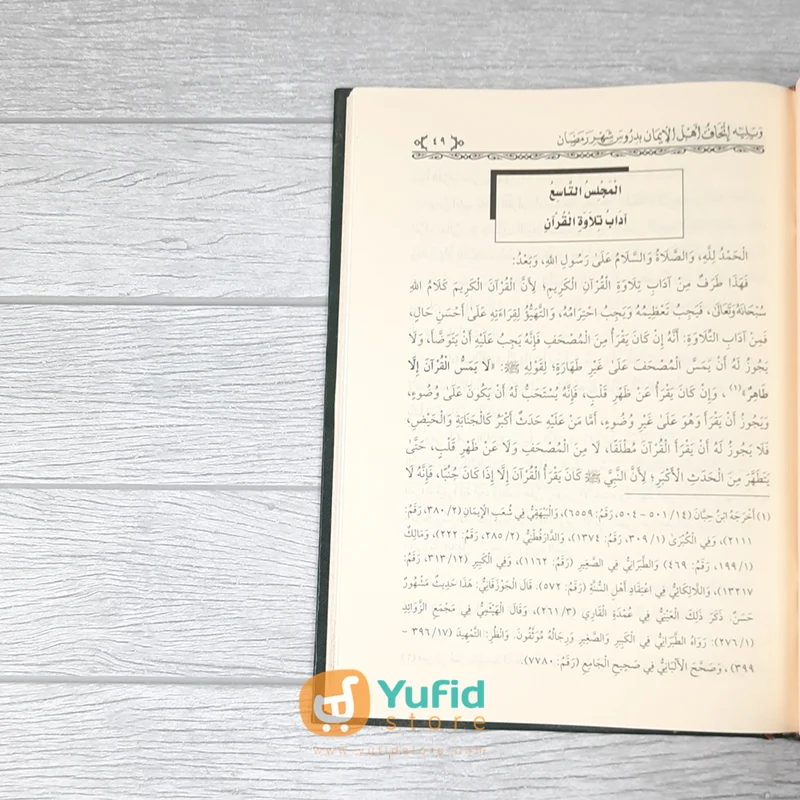 وَيَلِيْهِ إِتْحَافُ أَهْلِ الإِيمَانِ بِدُرُوسِ شَهْرِ رَمَضَانَ
٤٩
الْمَجْلِسُ التَّاسِعُ
آدَابُ تِلَاوَةِ الْقُرْآنِ
الْحَمْدُ لِلَّهِ، وَالصَّلَاةُ وَالسَّلَامُ عَلَىٰ رَسُولِ اللهِ، وَبَعْدُ:
فَهَذَا طَرَفٌ مِنْ آدَابِ تِلَاوَةِ الْقُرْآنِ الْكَرِيمِ؛ لِأَنَّ الْقُرْآنَ الْكَرِيمَ كَلَامُ اللهِ
سُبْحَانَهُ وَتَعَالَىٰ، فَيَجِبُ تَعْظِيمُهُ وَيَجِبُ احْتِرَامُهُ، وَالتَّهَيُّؤُ لِقِرَاءَتِهِ عَلَىٰ أَحْسَنِ حَالٍ،
فَمِنْ آدَابِ التِّلَاوَةِ: أَنَّهُ إِنْ كَانَ يَقْرَأُ مِنَ الْمُصْحَفِ فَإِنَّهُ يَجِبُ عَلَيْهِ أَنْ يَتَوَضَّأَ، وَلَا
يَجُوزُ لَهُ أَنْ يَمَسَّ الْمُصْحَفَ عَلَىٰ غَيْرِ طَهَارَةٍ؛ لِقَوْلِهِ ﷺ: «لَا يَمَسُّ الْقُرْآنَ إِلَّا
طَاهِرٌ»(١)، وَإِنْ كَانَ يَقْرَأُ عَنْ ظَهْرِ قَلْبٍ، فَإِنَّهُ يُسْتَحَبُّ لَهُ أَنْ يَكُونَ عَلَىٰ وُضُوءٍ،
وَيَجُوزُ أَنْ يَقْرَأَ وَهُوَ عَلَىٰ غَيْرِ وُضُوءٍ، أَمَّا مَنْ عَلَيْهِ حَدَثٌ أَكْبَرُ كَالْجَنَابَةِ وَالْحَيْضِ،
فَلَا يَجُوزُ لَهُ أَنْ يَقْرَأَ الْقُرْآنَ مُطْلَقًا، لَا مِنَ الْمُصْحَفِ وَلَا عَنْ ظَهْرِ قَلْبٍ، حَتَّىٰ
يَتَطَهَّرَ مِنَ الْحَدَثِ الْأَكْبَرِ؛ لِأَنَّ النَّبِيَّ ﷺ كَانَ يَقْرَأُ الْقُرْآنَ إِلَّا إِذَا كَانَ جُنُبًا، فَإِنَّهُ لَا
(١) أَخْرَجَهُ ابْنُ حِبَّانَ (١٤/ ٥٠١ – ٥٠٤، رَقَمُ: ٦٥٥٩)، وَالْبَيْهَقِيُّ فِي شُعَبِ الْإِيمَانِ (٢/ ٣٨٠، رَقَمُ:
٢١١١)، وَفِي الْكُبْرَىٰ (١/ ٣٠٩، رَقَمُ: ١٣٧٤)، وَالدَّارَقُطْنِيُّ (٢/ ٢٨٥، رَقَمُ: ٢٢٢)، وَمَالِكٌ
(١/ ١٩٩، رَقَمُ: ٤٦٩) وَالطَّبَرَانِيُّ فِي الصَّغِيرِ (رَقَمُ: ١١٦٢)، وَفِي الْكَبِيرِ (١٢/ ٣١٣، رَقَمُ:
١٣٢١٧)، وَاللَّالِكَائِيُّ فِي اعْتِقَادِ أَهْلِ السُّنَّةِ (رَقَمُ: ٥٧٢). قَالَ الْجَوْزَقَانِيُّ: هَذَا حَدِيثٌ مَشْهُورٌ
حَسَنٌ. ذَكَرَ ذَلِكَ الْعَيْنِيُّ فِي عُمْدَةِ الْقَارِي (٣/ ٢٦١)، وَقَالَ الْهَيْثَمِيُّ فِي مَجْمَعِ الزَّوَائِدِ
(١/ ٢٧٦): رَوَاهُ الطَّبَرَانِيُّ فِي الْكَبِيرِ وَالصَّغِيرِ وَرِجَالُهُ مُوَثَّقُونَ. وَانْظُرِ: التَّمْهِيدَ (١٧/ ٣٩٦ –
٣٩٩)، وَصَحَّحَهُ الْأَلْبَانِيُّ فِي صَحِيحِ الْجَامِعِ (رَقَمُ: ٧٧٨٠).
Yufid
store
www.yufidstore.com